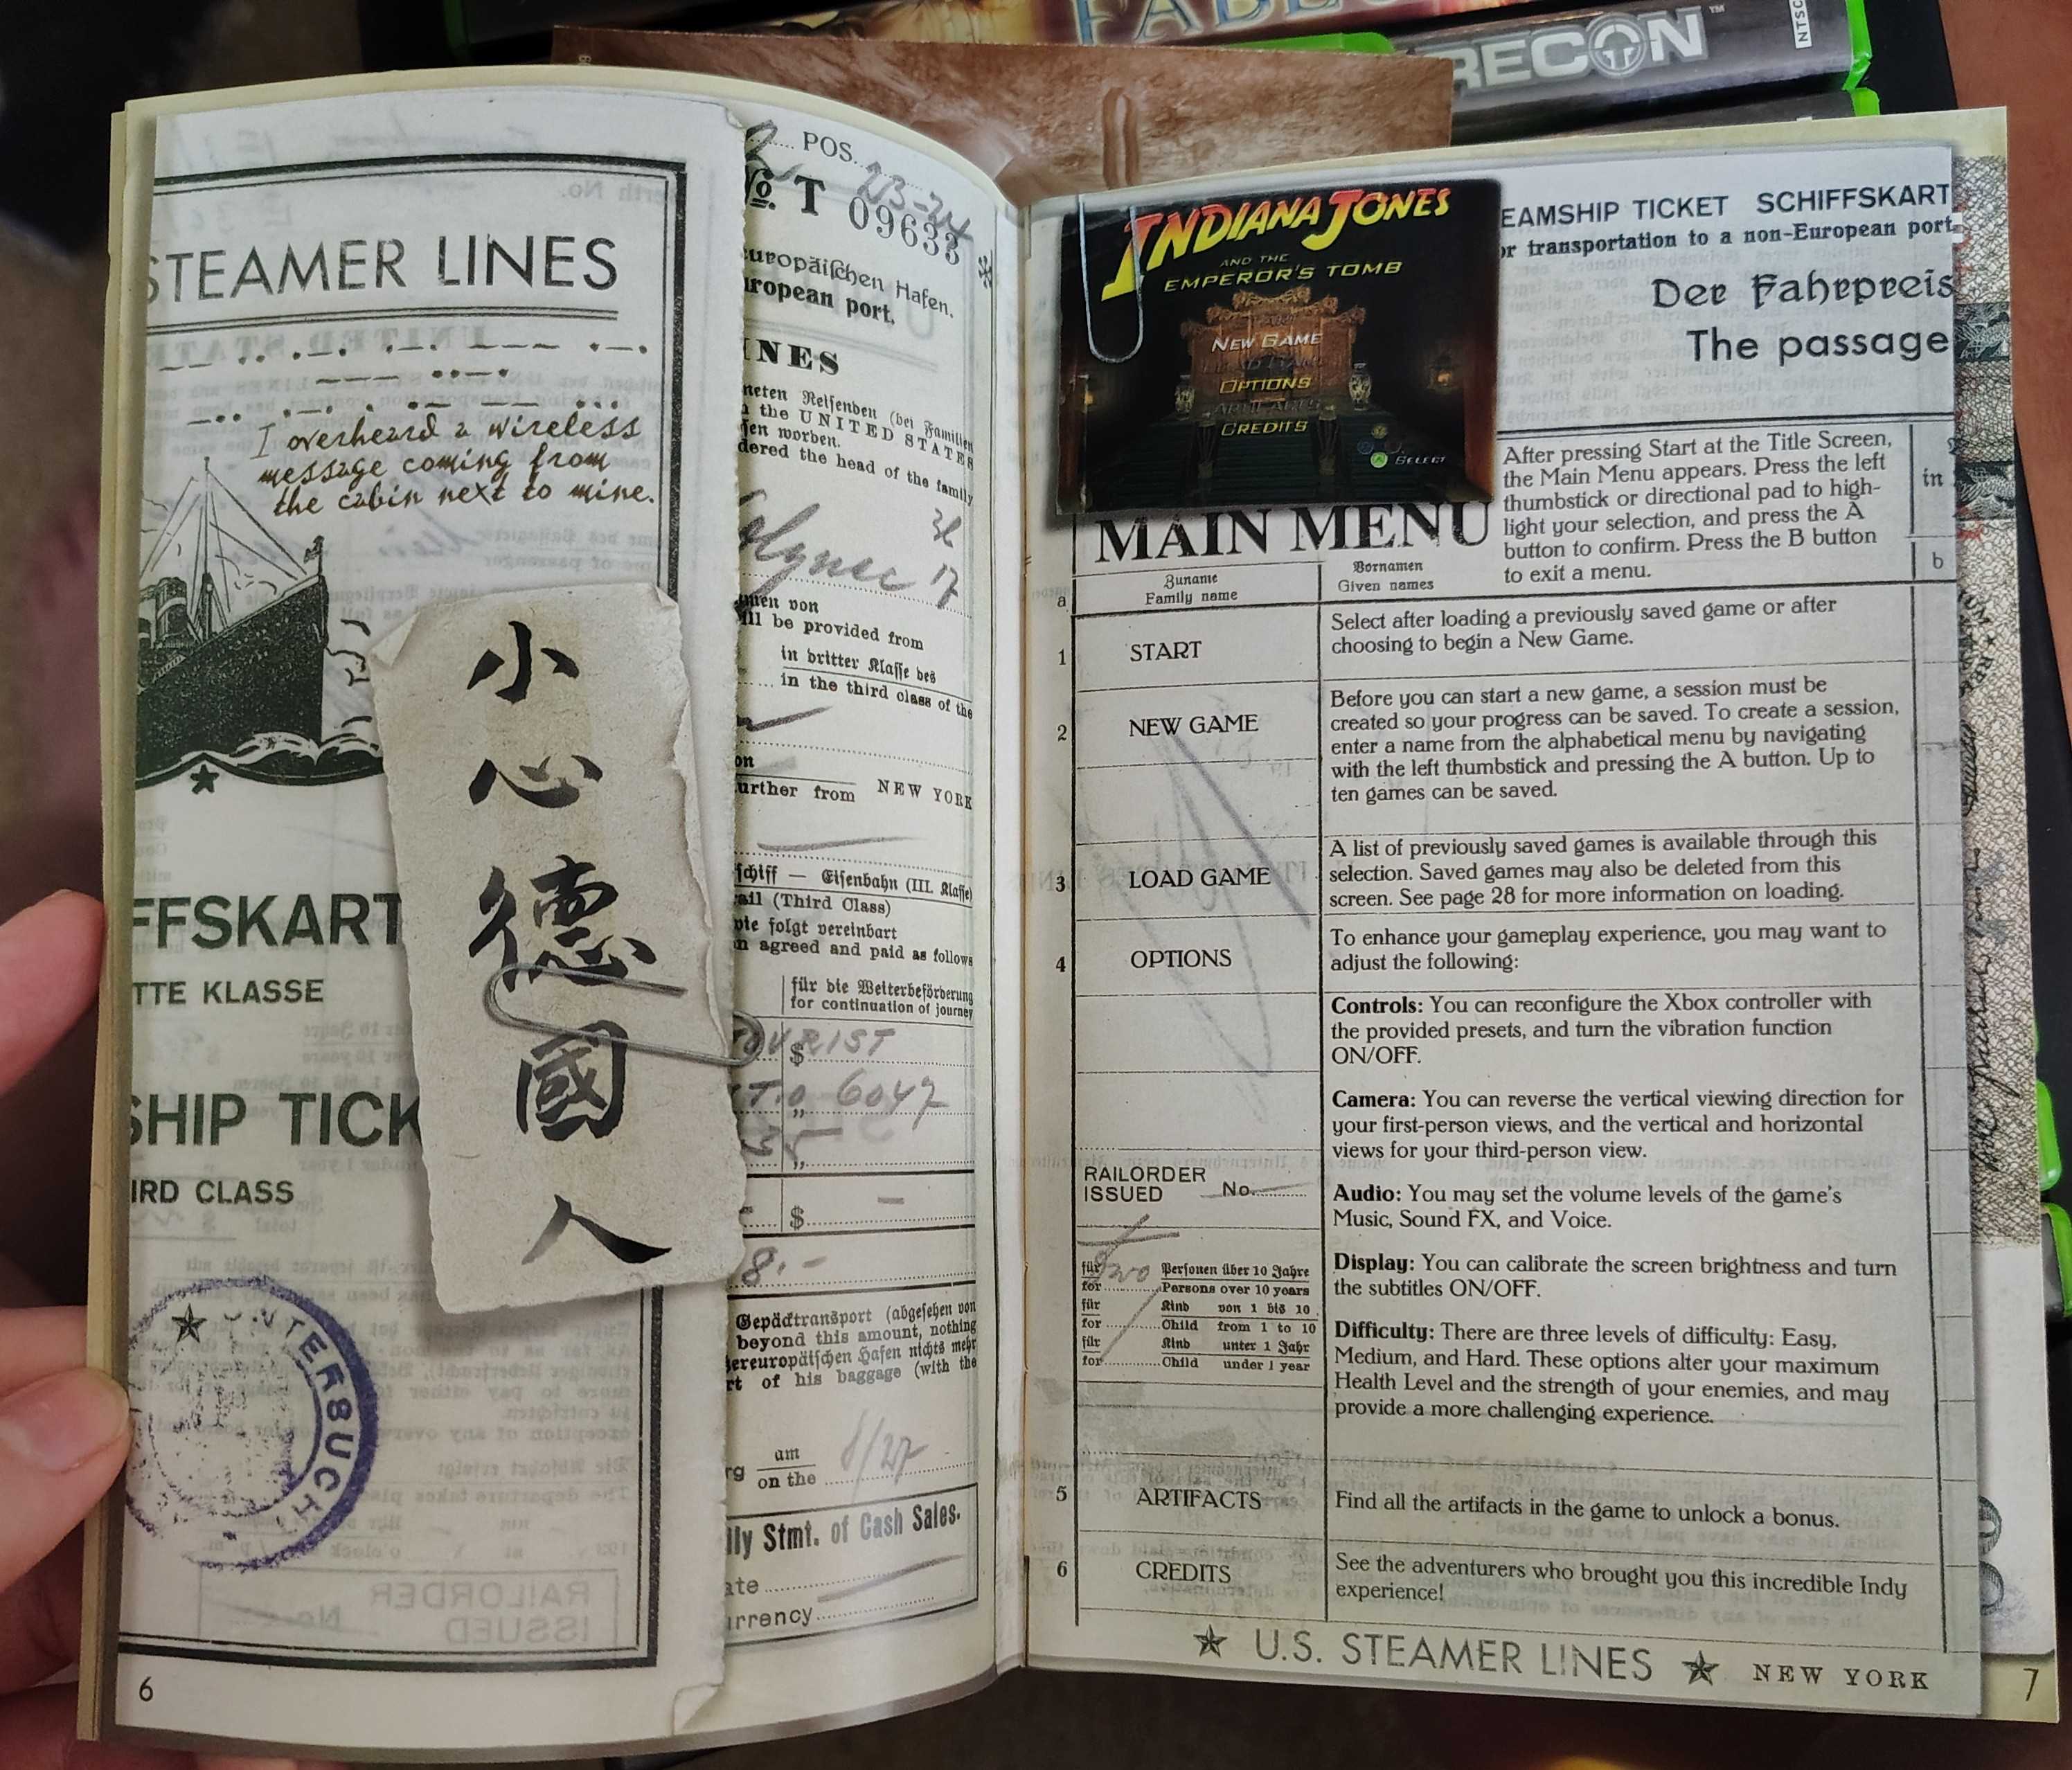 FABLE
RECON™
NTSC
STEAMER LINES
I overheard a wireless
message coming from
the cabin next to mine.
小
心
德
國
人
FFSKART
TTE KLASSE
SHIP TICK
IRD CLASS
UNTERSUCH
6
POS. 23-24
No. T 09633
europäischen Hafen.
uropean port.
INES
neten Reisenden (bei Familien
n the UNITED STATES
sen worden.
dered the head of the family
men von
ill be provided from
in dritter Klasse des
in the third class of the
on
urther from NEW YORK
schiff — Eisenbahn (III. Klasse)
rail (Third Class)
wie folgt vereinbart
n agreed and paid as follows
für die Weiterbeförderung
for continuation of journey
TOURIST
$
6047
$
8.-
Gepäcktransport (abgesehen von
beyond this amount, nothing
sereuropäischen Hafen nichts mehr
rt of his baggage (with the
rg am
on the 8/27
ily Stmt. of Cash Sales.
ate
urrency
INDIANA JONES
AND THE
EMPEROR'S TOMB
NEW GAME
LOAD GAME
OPTIONS
ARTIFACTS
CREDITS
SELECT
EAMSHIP TICKET SCHIFFSKART
or transportation to a non-European port
Der Fahrpreis
The passage
MAIN MENU
After pressing Start at the Title Screen,
the Main Menu appears. Press the left
thumbstick or directional pad to high-
light your selection, and press the A
button to confirm. Press the B button
to exit a menu.
in
b
a
Zuname
Family name
Vornamen
Given names
1 START
Select after loading a previously saved game or after
choosing to begin a New Game.
2 NEW GAME
Before you can start a new game, a session must be
created so your progress can be saved. To create a session,
enter a name from the alphabetical menu by navigating
with the left thumbstick and pressing the A button. Up to
ten games can be saved.
3 LOAD GAME
A list of previously saved games is available through this
selection. Saved games may also be deleted from this
screen. See page 28 for more information on loading.
4 OPTIONS
To enhance your gameplay experience, you may want to
adjust the following:
Controls: You can reconfigure the Xbox controller with
the provided presets, and turn the vibration function
ON/OFF.
Camera: You can reverse the vertical viewing direction for
your first-person views, and the vertical and horizontal
views for your third-person view.
Audio: You may set the volume levels of the game's
Music, Sound FX, and Voice.
Display: You can calibrate the screen brightness and turn
the subtitles ON/OFF.
Difficulty: There are three levels of difficulty: Easy,
Medium, and Hard. These options alter your maximum
Health Level and the strength of your enemies, and may
provide a more challenging experience.
RAILORDER
ISSUED No.
für Personen über 10 Jahre
for Persons over 10 years
für Kind von 1 bis 10
for Child from 1 to 10
für Kind unter 1 Jahr
for Child under 1 year
5 ARTIFACTS
Find all the artifacts in the game to unlock a bonus.
6 CREDITS
See the adventurers who brought you this incredible Indy
experience!
U.S. STEAMER LINES NEW YORK
7